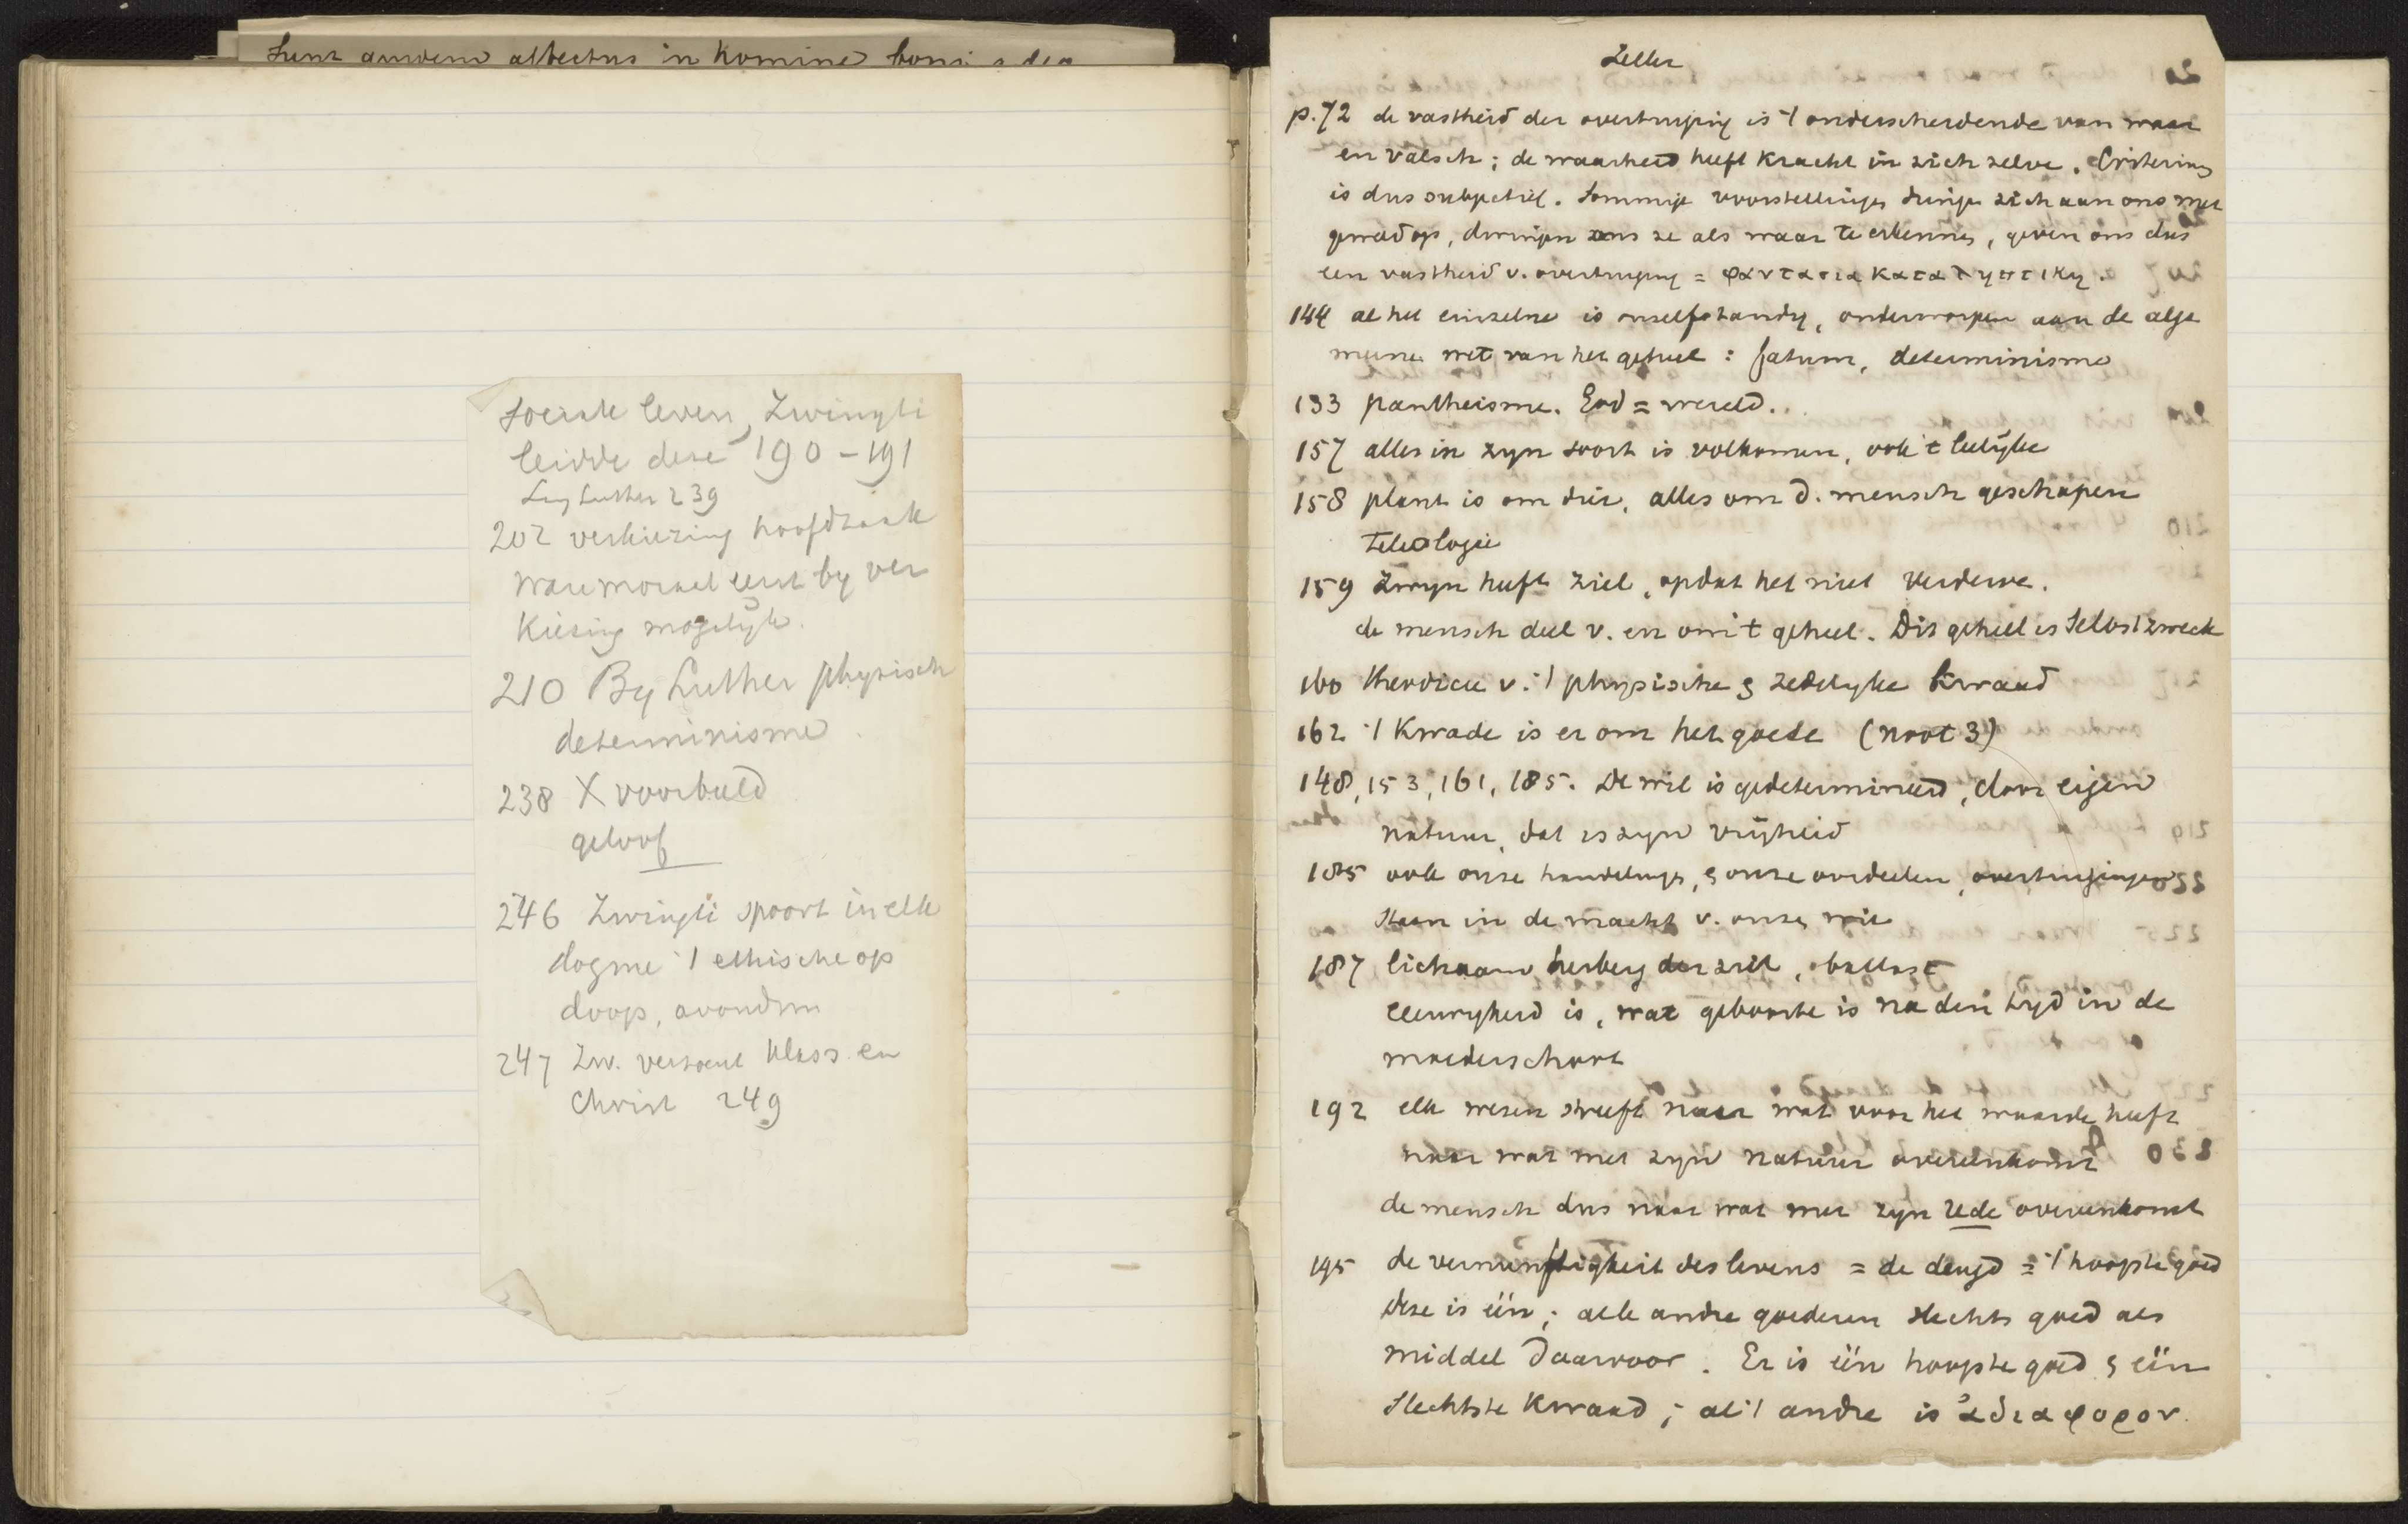 Sunt autem affectus in homine boni
sociale leven, Zwingli
leidde deze 190-191
Leg Luther 239
202 verkiezing hoofdzaak
ware moraal eerst by ver
kiezing mogelijk.
210 By Luther physisch
determinisme.
238 X voorbeeld
geloof
246 Zwingli spoort in elk
dogme 't ethische op
doop, avondm
247 Zw. verzoent klass. en
Christ 249
Zeller
p. 72 de vastheid der overtuiging is 't onderscheidende van waar
en valsch; de waarheid heeft kracht in zich zelve. Criterium
is dus subjectief. Sommige voorstellingen dringen zich aan ons met
geweld op, dwingen ons ze als waar te erkennen, geven ons dus
een vastheid v. overtuiging = φαντασια καταληπτικη.
144 al het einzelne is onzelfstandig, onderworpen aan de alge
meene wet van het geheel: fatum, determinisme
133 pantheisme. God = wereld.
157 alles in zyn soort is volkomen, ook 't leelijke
158 plant is om dier, alles om d. mensch geschapen
Teleologie
159 Zwyn heeft ziel, opdat het niet verderve.
de mensch deel v. en om 't geheel. Dit geheel is Selbstzweck
160 theodicee v. 't physische & zedelyke kwaad
162 't kwade is er om het goede (noot 3)
148, 153, 161, 185. De wil is gedetermineerd, door eigen
natuur, dat is zyn vrijheid
185 ook onze handelingen, & onze oordeelen, overtuigingen
staan in de macht v. onze wil
187 lichaam herberg der ziel, ballast
eeuwigheid is, wat geboorte is na den tyd in de
moederschoot
192 elk wezen streeft naar wat voor het waarde heeft
naar wat met zyn natuur overeenkomt
de mensch dus naar wat met zyn rede overeenkomt
195 de vernunftigkeit des levens = de deugd = 't hoogste goed
deze is één; alle andre goederen slechts goed als
middel daarvoor. Er is één hoogste goed & één
slechtste kwaad; al 't andre is ἀδιαφορον.